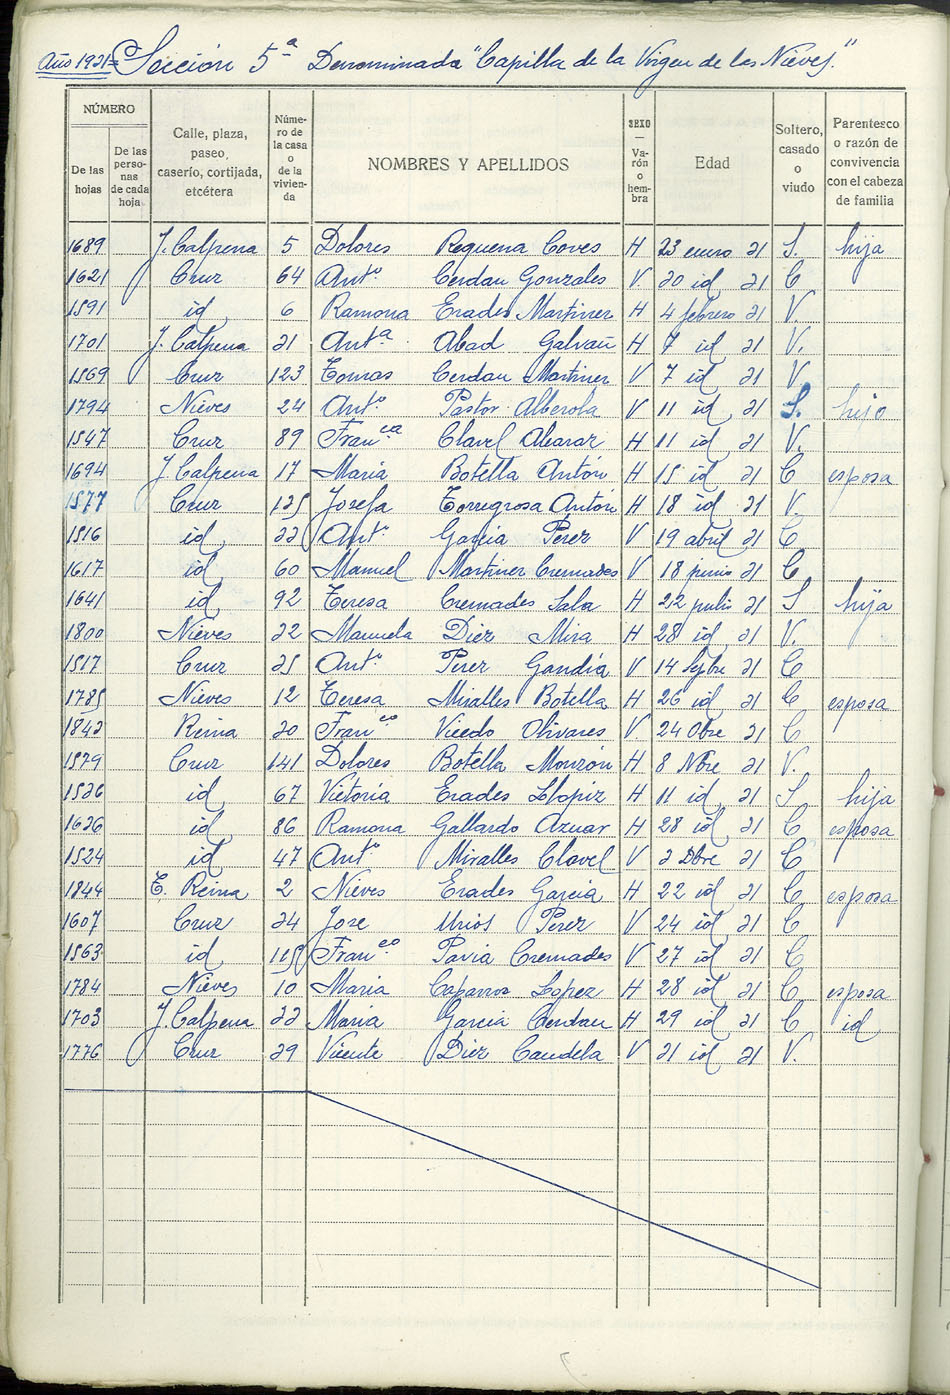 Año 1921= Sección 5ª Denominada "Capilla de la Virgen de las Nieves."
NÚMERO
De las hojas
De las personas de cada hoja
Calle, plaza, paseo, caserío, cortijada, etcétera
Número de la casa o de la vivienda
NOMBRES Y APELLIDOS
SEXO — Varón o hembra
Edad
Soltero, casado o viudo
Parentesco o razón de convivencia con el cabeza de familia
1689 J. Calpena 5 Dolores Requena Coves H 23 enero 21 S. hija
1621 Cruz 64 Antº Cerdan Gonzales V. 30 id 21 C
1591 id 6 Ramona Erades Martinez H 4 febrero 21 V.
1701 J. Calpena 21 Antª Abad Galvañ H 7 id 21 V.
1569 Cruz 123 Tomas Cerdan Martinez V 7 id 21 V
1794 Nieves 24 Antº Pastor Alberola V 11 id 21 S. hijo
1547 Cruz 89 Franca Clavel Alcaraz H 11 id 21 V.
1694 J. Calpena 17 Maria Botella Antón H 15 id 21 C esposa
1577 Cruz 135 Josefa Torregrosa Antón H 18 id 21 V.
1516 id 33 Antº Garcia Perez V 19 abril 21 C
1617 id 60 Manuel Martinez Cremades V 18 junio 21 C
1641 id 92 Teresa Cremades Sala H 22 julio 21 S hija
1800 Nieves 32 Manuela Diez Mira H 28 id 21 V.
1517 Cruz 35 Antº Perez Gandía V 14 Sepbre 21 C
1785 Nieves 12 Teresa Miralles Botella H 26 id 21 C esposa
1843 Reina 30 Franco Vicedo Olivares V 24 Obre 21 C
1579 Cruz 141 Dolores Botella Monzón H 8 Nbre 21 V.
1536 id 67 Victoria Erades Llopiz H 11 id 21 S hija
1636 id 86 Ramona Gallardo Aznar H 28 id 21 C esposa
1524 id 47 Antº Miralles Clavel V 3 Dbre 21 C
1844 E. Reina 2 Nieves Erades Garcia H 22 id 21 C esposa
1607 Cruz 34 Jose Urios Perez V 24 id 21 C
1563 id 115 Franco Pavia Cremades V 27 id 21 C
1784 Nieves 10 Maria Caparros Lopez H 28 id 21 C esposa
1703 J. Calpena 33 Maria Garcia Cerdan H 29 id 21 C id
1776 Cruz 39 Vicente Diez Candela V 31 id 21 V.